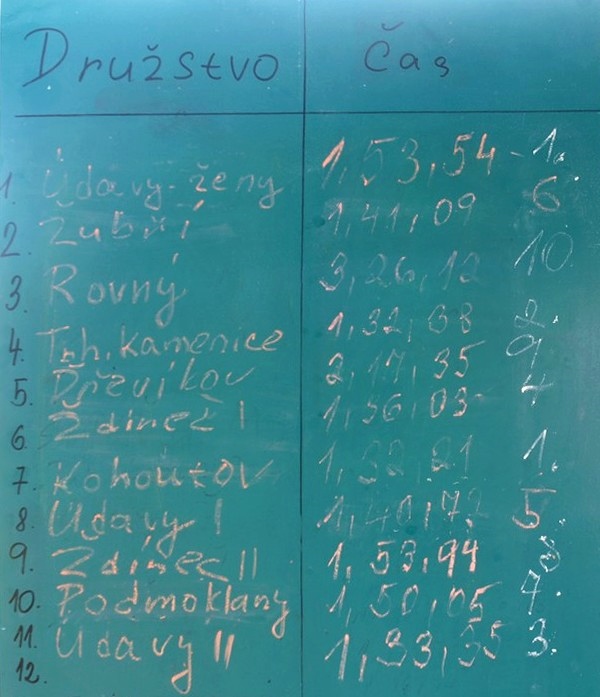 Družstvo Čas
1. Údavy-ženy 1,53,54 - 1.
2. Žubří 1,41,09 6
3. Rovný 3,26,12 10
4. Trh. kamenice 1,32,38 2.
5. Dřevíkov 2,17,35 9
6. Ždíneč I 1,36,03 4
7. Kohoutov 1,32,21 1.
8. Údavy I 1,40,72 5
9. Zdíneč II 1,53,94
10. Podmoklany 1,50,05 7.
11. Údavy II 1,33,55 3.
12.